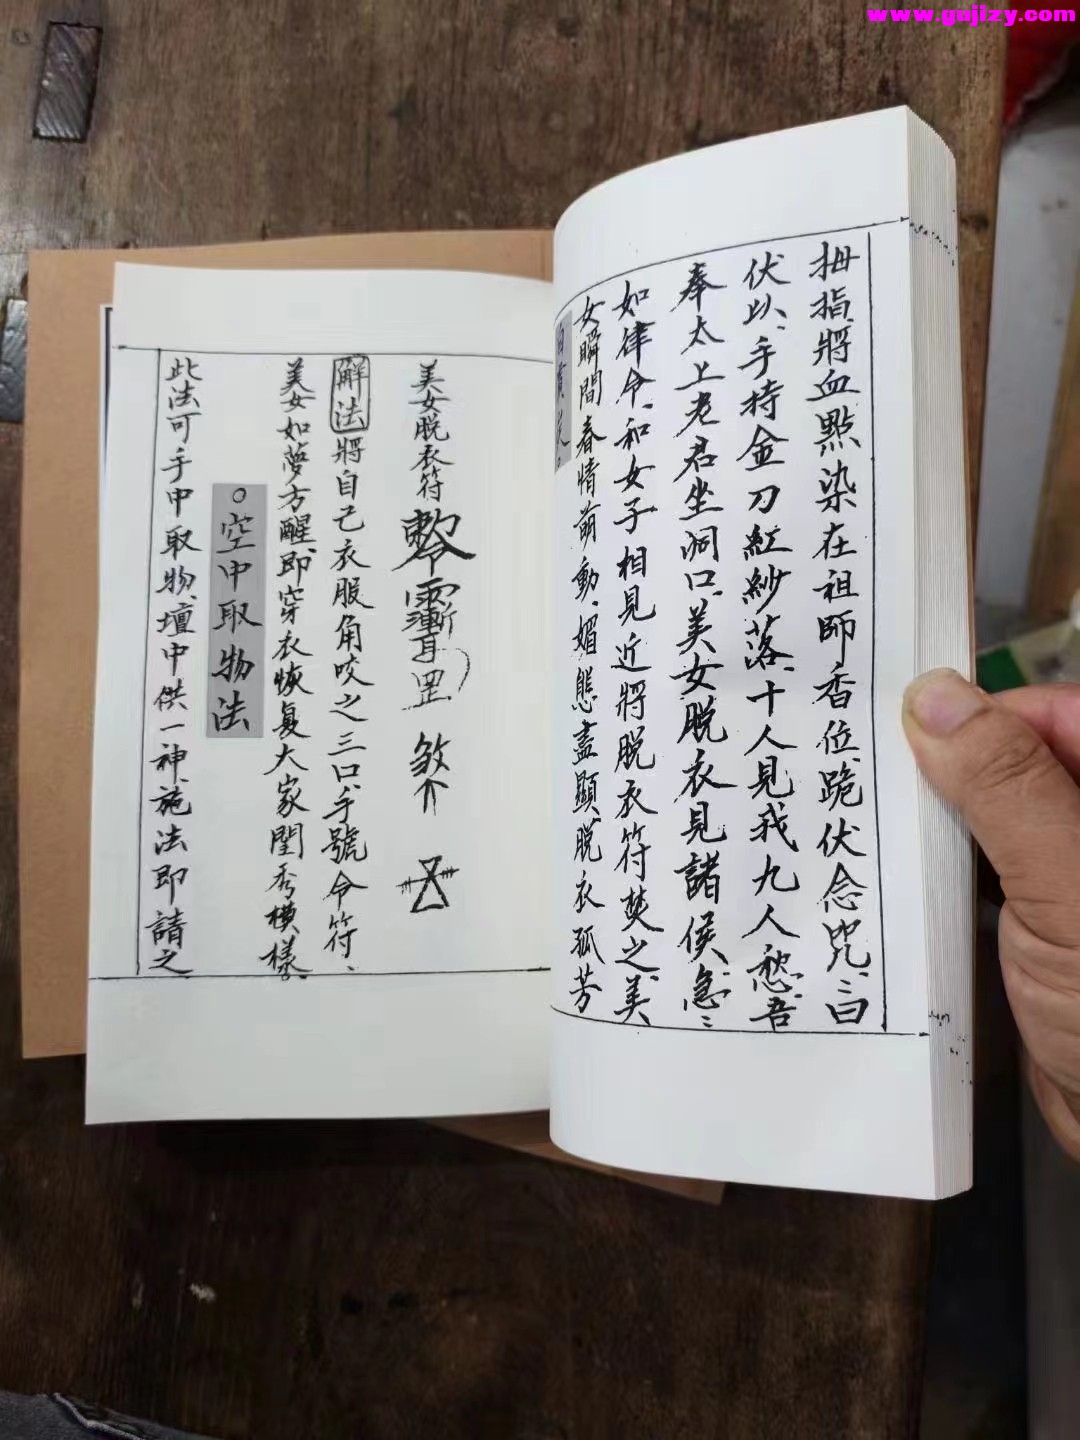 www.gujizy.com
拇指、將血點染在祖師香位、跪伏念咒、曰
伏以、手持金刀紅紗落、十人見我九人愁、吾
奉太上老君坐洞口、美女脱衣見諸侯、急々
如律令、和女子相見近將脱衣符焚之、美
女瞬間春情萌動、媚態盡顯、脱衣孤芳
美女脱衣符
解法 將自己衣服角咬之三口、手號令符、
美女如夢方醒、即穿衣恢复大家閨秀模樣。
○空中取物法
此法可手中取物、壇中供一神、施法即請之